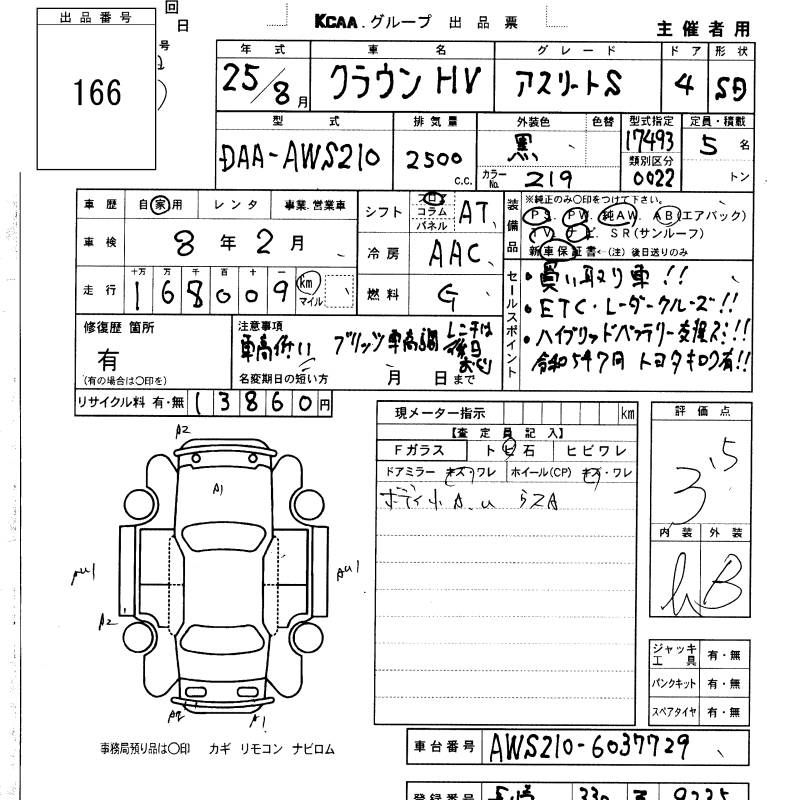 回
日
号
KCAA.グループ 出品票
主催者用
出品番号
166
年式 車名 グレード ドア 形状
25/8月 クラウンHV アスリートS 4 SD
型式 排気量 外装色 色替 型式指定 定員・積載
DAA-AWS210 2500 c.c. 黒 17493 5名
カラーNo. 219 類別区分 0022 トン
車歴 自家用 レンタ 事業.営業車
車検 8年2月
走行 十万 万 千 百 十 一
168009 km マイル
シフト フロア コラム パネル AT
冷房 AAC
燃料 G
装備品
※純正のみ〇印をつけて下さい。
PS PW 純AW AB(エアバック)
TV ナビ SR(サンルーフ)
新車保証書←(注)後日送りのみ
セールスポイント
・買い取り車!!
・ETC・レーダークルーズ!!
・ハイブリッドバッテリー交換ス!!!
令和5年47円 トヨタキロク有!!
修復歴 箇所
有
(有の場合は〇印を)
注意事項
車高低い ブリッツ車高調
名変期日の短い方 月 日まで
リサイクル料 有・無 13860円
現メーター指示 km
【査定員記入】
Fガラス トビ石 ヒビワレ
ドアミラー キズ・ワレ ホイール(CP) キズ・ワレ
ボディ小A.u
評価点
3.5
内装 外装
B
A2
A1
AU1
AU1
A2
A2
A1
ジャッキ工具 有・無
パンクキット 有・無
スペアタイヤ 有・無
事務局預り品は〇印 カギ リモコン ナビロム
車台番号 AWS210-6037729
登録番号 長崎 330 9235